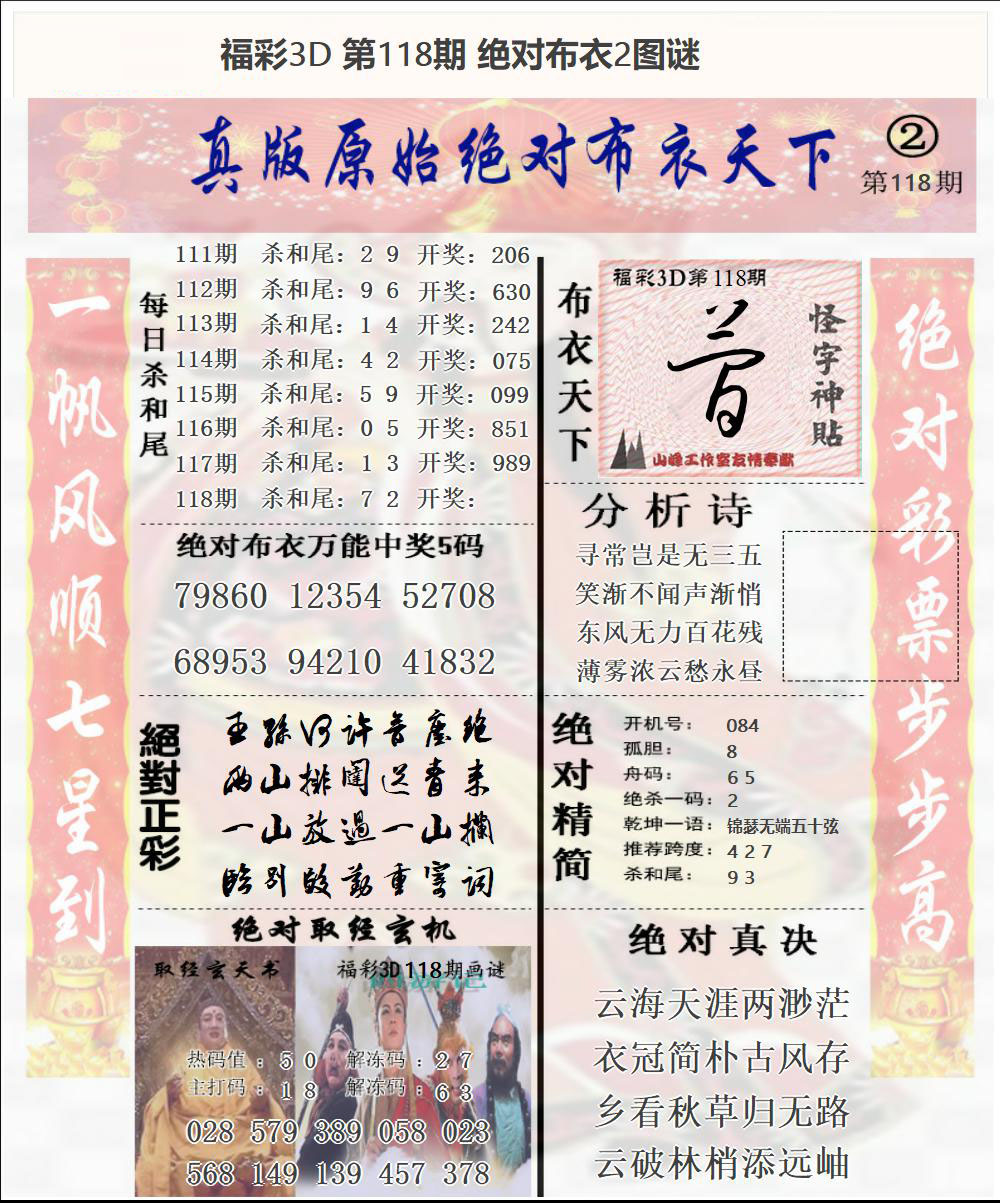 福彩3D 第118期 绝对布衣2图谜
真版原始绝对布衣天下
②
第118期
一帆风顺七星到
每日杀和尾
111期 杀和尾：2 9 开奖：206
112期 杀和尾：9 6 开奖：630
113期 杀和尾：1 4 开奖：242
114期 杀和尾：4 2 开奖：075
115期 杀和尾：5 9 开奖：099
116期 杀和尾：0 5 开奖：851
117期 杀和尾：1 3 开奖：989
118期 杀和尾：7 2 开奖：
绝对布衣万能中奖5码
79860 12354 52708
68953 94210 41832
絕對正彩
王孫何许音塵绝
两山排闥送青来
一山放過一山攔
临别殷勤重寄词
绝对取经玄机
取经玄天书
福彩3D118期画谜
热码值：5 0 解冻码：2 7
主打码：1 8 解冻码：6 3
028 579 389 058 023
568 149 139 457 378
布衣天下
福彩3D第118期
怪字神贴
山峰工作室友情奉献
分析诗
寻常岂是无三五
笑渐不闻声渐悄
东风无力百花残
薄雾浓云愁永昼
绝对精简
开机号：084
孤胆：8
舟码：6 5
绝杀一码：2
乾坤一语：锦瑟无端五十弦
推荐跨度：4 2 7
杀和尾：9 3
绝对真决
云海天涯两渺茫
衣冠简朴古风存
乡看秋草归无路
云破林梢添远岫
绝对彩票步步高